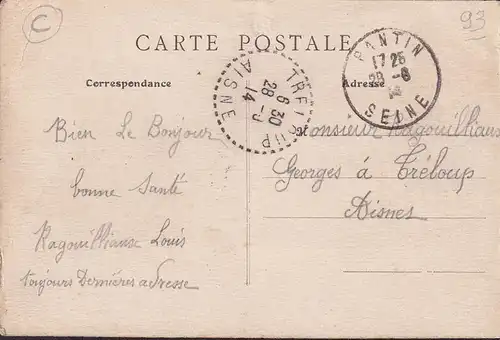 C
93
CARTE POSTALE
Correspondance
Adresse
PANTIN
17 25
SEINE
TRELOUP
6 30
28
14
AISNE
Bien Le Bonjour
bonne Santé
Ragouilliaux Louis
toujours Dernières adresse
Monsieur Ragouilliaux
Georges á Tréloup
Aisnes